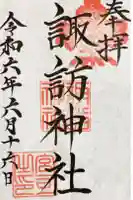 奉拝
諏訪神社
令和六年六月十六日